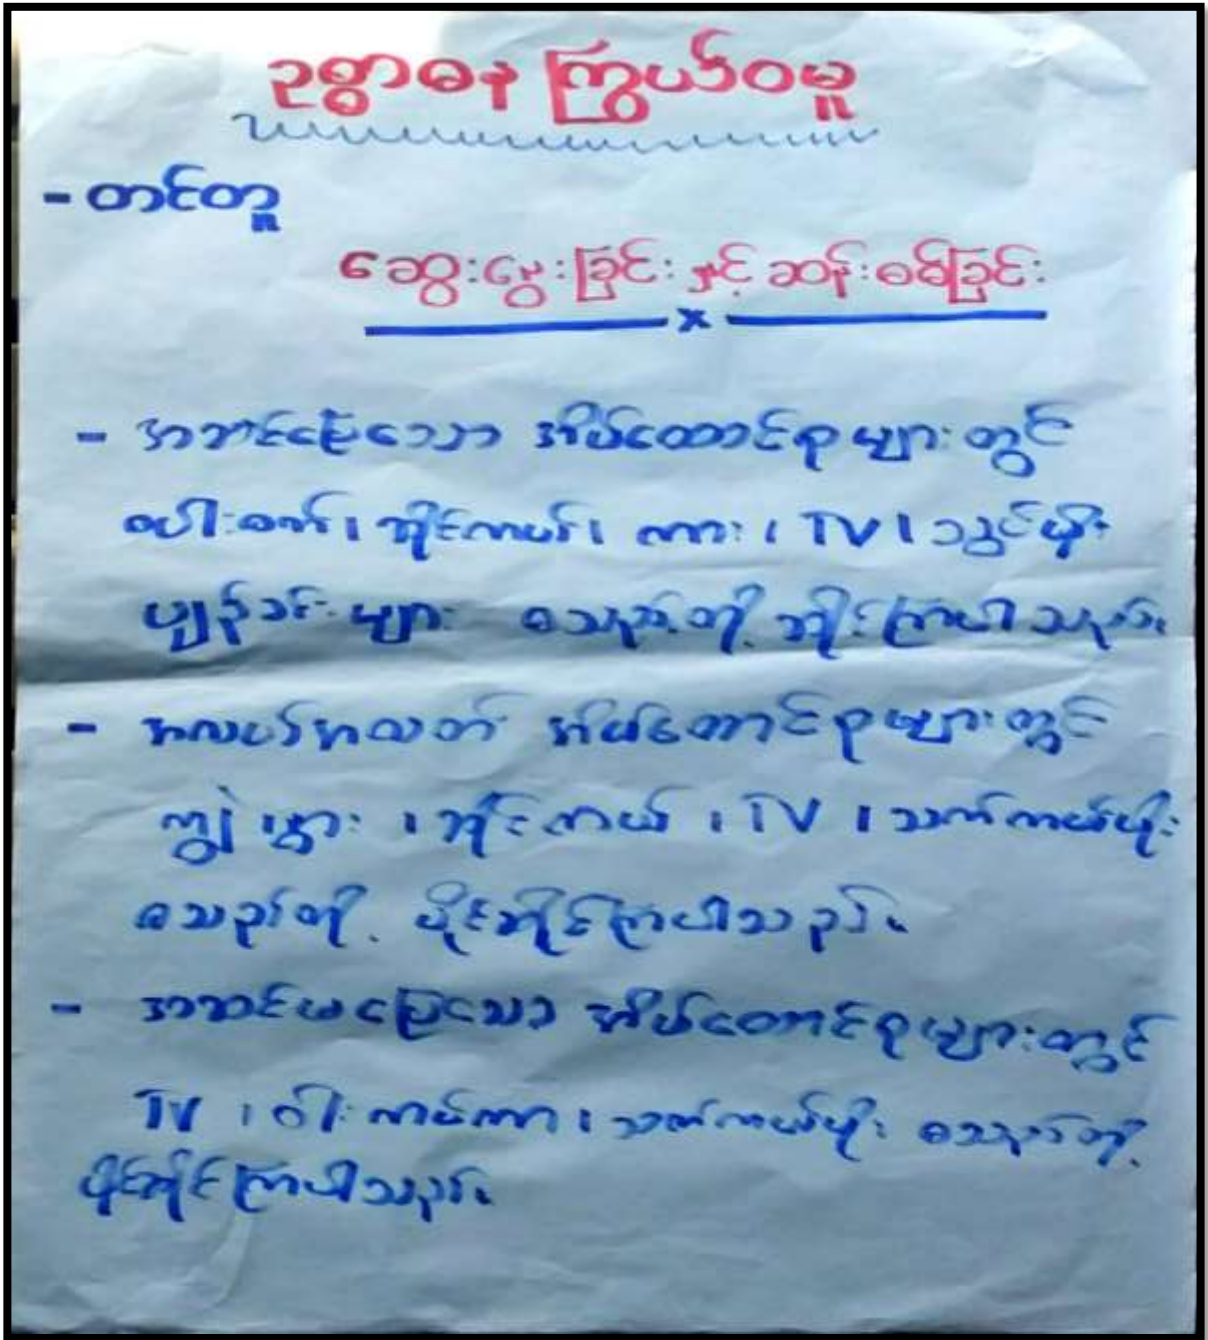 ဥစ္စာဓန ကြွယ်ဝမှု
- တင်တူ
ဆွေးနွေးခြင်း နှင့် ဆန်းစစ်ခြင်း
x
- အဆင်ပြေသော အိမ်ထောင်စုများတွင်
စပါးစက်၊ ဆိုင်ကယ်၊ ကား၊ TV ၊ သွင်မိုး
ပျဉ်ခင်းများ စသည်တို့ ဆိုင်ကြပါသည်။
- အလယ်အလတ် အိမ်ထောင်စုများတွင်
ကျွဲ၊ နွား ၊ ဆိုင်ကယ် ၊ TV ၊ သက်ကယ်မိုး
စသည်တို့ ပိုင်ဆိုင်ကြပါသည်။
- အဆင်မပြေသော အိမ်ထောင်စုများတွင်
TV ၊ ဝါးကပ်ကာ ၊ သက်ကယ်မိုး စသည်တို့
ပိုင်ဆိုင်ကြပါသည်။